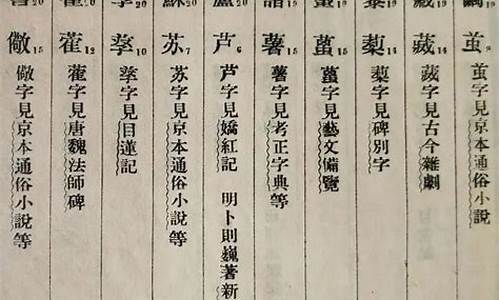 19
19
19
19
藷 19
蘆 20
蘇 20
20
20
20
茧 9
茧字見京本通俗小說
蔵 14
蔵字見古今雜劇
14
字見碑別字
15
字見藝文備覽
薯 15
薯字見考正字典等
芦 6
芦字見嬌紅記 明卜則巍著新
苏 7
苏字見京本通俗小說等
10
字見目蓮記
12
字見唐魏法師碑
15
字見京本通俗小說等